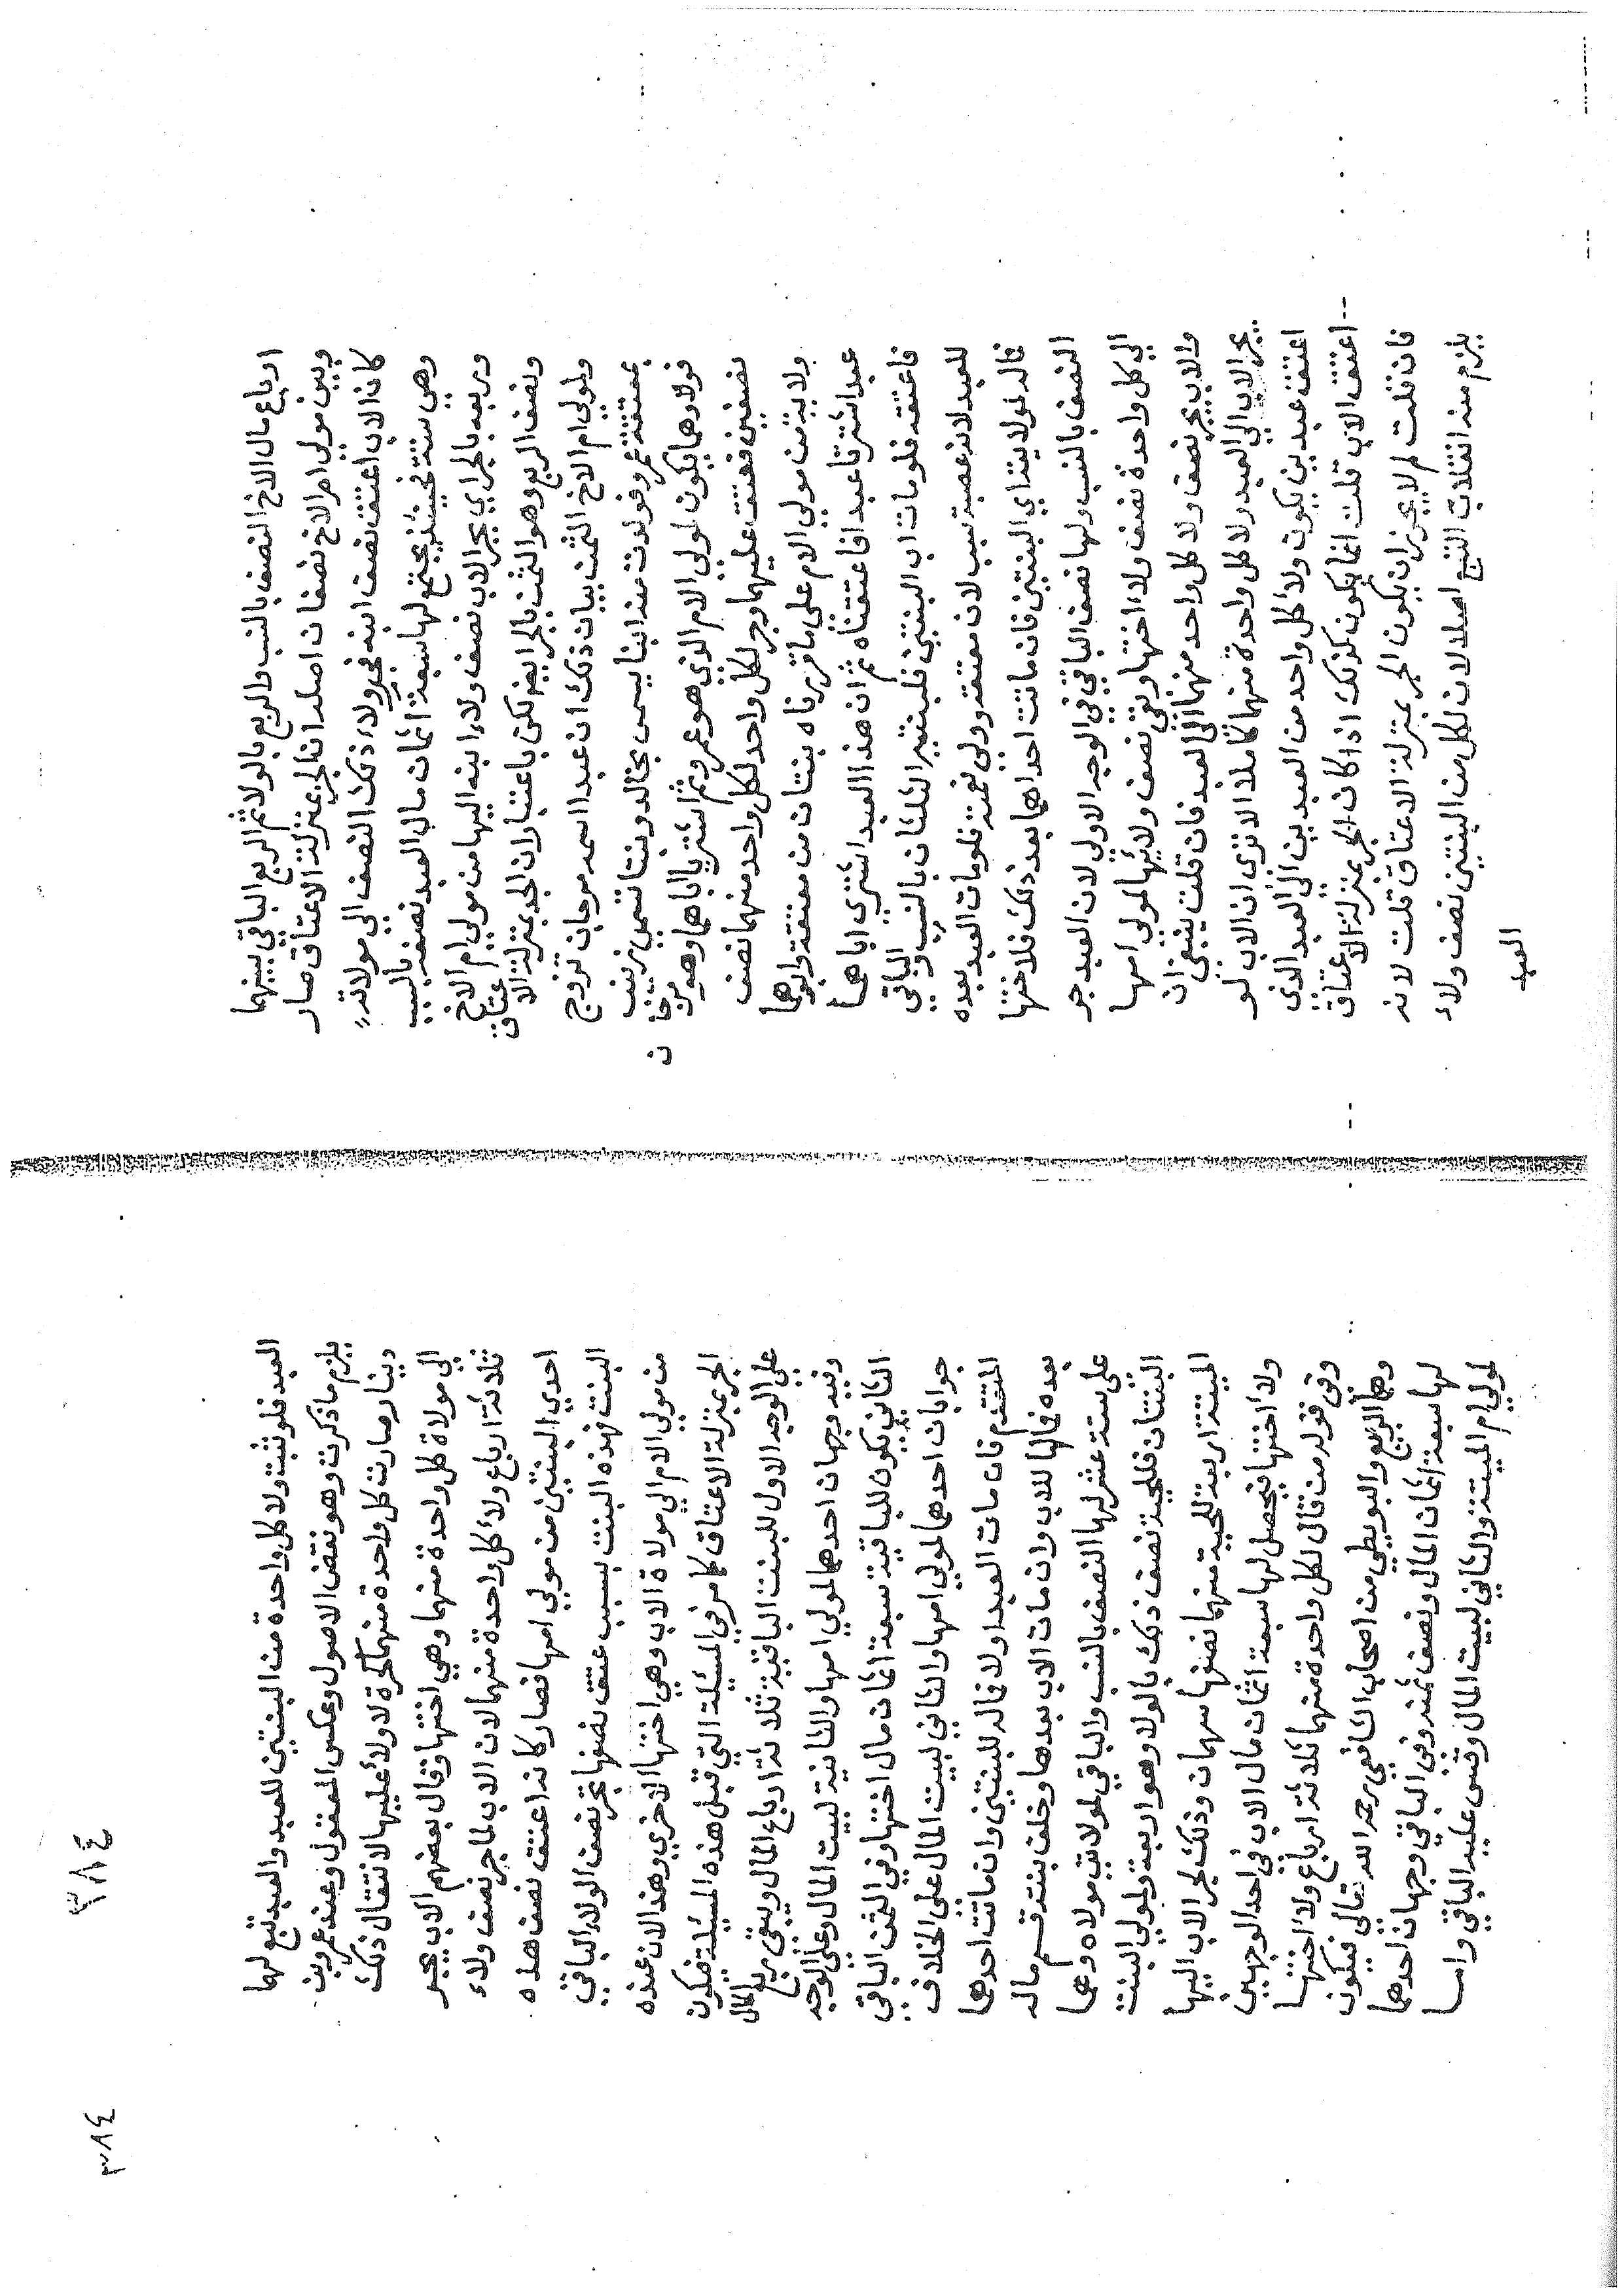 ارباع مال الاخ النصف بالنسب والربع بالولا ثم الربع الباقي بينهما
وبين مولي ام الاخ نصفان اصله ان الجر بمنزلة الاعتاق صار
كان الاب اعتق نصف ابنه فجر ولاء ذلك النصف الي مولاته
وهي بنته فحينئذ يجتمع لها سبعة اثمان مال العبد نصفه بالنسب
وربعه بالجر اي بجر الاب نصف ولاء ابنه اليها من مولي ام الاخ
ونصف الربع وهو الثمن بالجر ايضا لكن باعتبار ان الجر بمنزلة الاعتاق
ولمولي ام الاخ الثمن بيان ذلك ان عبدا اسمه مرجان تزوج
بمعتقة عمرو فولدت منه ابنا يسمي بخالد وبنتا تسمي زينب
فولاوهما يكون لمولي الام الذي هو عمرو ثم اشتريا اباهما وهو مرجان
نصفين فعتق عليهما وجر لكل واحد لكل واحد منهما نصف
ولا بد من مولي الام على ما قررناه بنتان من معتقة وابوهما
عبد اشترتا عبدا فاعتقتاه ثم ان هذا العبد اشتري اباهما
فاعتقه فلو مات اب البنتين فلبنتيه الثلثان بالنسب والباقي
للعبد لانه عصبة سبب لان معتقه وولي نعمته فلو مات العبد بعده
فماله لمولاتيه اي البنتين فان ماتت احداهما بعد ذلك فلاختها
النصف بالنسب ولها نصف الباقي في الوجه الاولي لان العبد جر
الي كل واحدة نصف ولاء اختها وبقي نصف ولائها لمولي امها
والاب يجر نصف ولا كل واحد منهما الي العبد فان قلت ينبغي ان
يجر الاب الي العبد ولا كل واحدة منهما كاملا الا تري ان الاب لو
اعتق عبدين يكون ولا كل واحد من العبدين الي العبد الذي
اعتق الاب قلت انما يكون كذلك اذا كان الجر بمنزلة الاعتاق
فان قلت لم لا يجوز ان يكون الجر بمنزلة الاعتاق قلت لانه
يلزم منه انقلاب التبع اصلا لان لكل من البنتين نصف ولاء
العبد
٣٨٤
٣٨٤
العبد فلو ثبت ولا كل واحدة من البنتين للعبد والعبد تبع لهما
يلزم ما ذكرت وهو نقض الاصول وعكس المعقول وعند عمرو بن
دينار صارت كل واحدة منهما كحرة لا ولاء عليها لانتقال ذلك
الي مولاة كل واحدة منهما وهي اختها وقال بعضهم الاب يجر
ثلاثة ارباع ولا كل واحدة منهما لان الاب لما جر نصف ولاء
احدي البنتين من مولي امها فصار كانه اعتق نصف هذه
البنت فهذه البنت بسبب عتق نصفها تجر نصف الولاء الباقي
من مولي الام الي مولاة الاب وهي اختها الاخري وهذا لان عنده
الجر بمنزلة الاعتاق كما مر في المسئلة التي قبل هذه المسئلة فيكون
على الوجه الاول للبنت الباقية ثلاثة ارباع المال ويبقي ربع المال
وفيه وجهان احدهما لمولي امها والثانية لبيت المال وعلى الوجه
الثاني يكون للباقية سبعة اثمان مال اختها وفي الثمن الباقي
جوابان احدهما لمولي امها والثاني لبيت المال على الخلاف
المتقدم فان مات العبد اولا فماله للبنتين وان ماتت احدهما
بعده فمالها للاب وان مات الاب بعدها وخلف بنته قسم ماله
على ستة عشر لها النصف بالنسب والباقي لمولاتي مولاه وهما
البنتان فللحية نصف ذلك بالولا وهو اربعة ولمولي البنت
الميتة اربعة للحية منهما نصفها سهمان وذلك لجر الاب اليها
ولاء اختها فيحصل لها سبعة اثمان مال الاب في احد الوجهين
وفي قوله من قال لكل واحدة منهما ثلاثة ارباع ولاء اختها
وهما الربيع والبويطي من اصحاب الشافعي رحمه الله تعالي فيكون
لها سبعة اثمان المال ونصف ثمنه وفي الباقي وجهان احدهما
لمولي ام الميتة والثاني لبيت المال وقس عليه الباقي واما